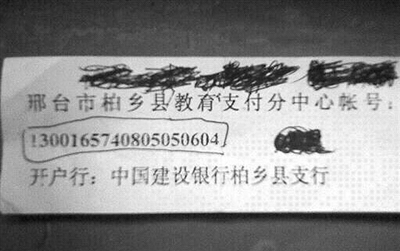 邢台市柏乡县教育支付分中心帐号：
13001657408050506​04
开户行：中国建设银行柏乡县支行